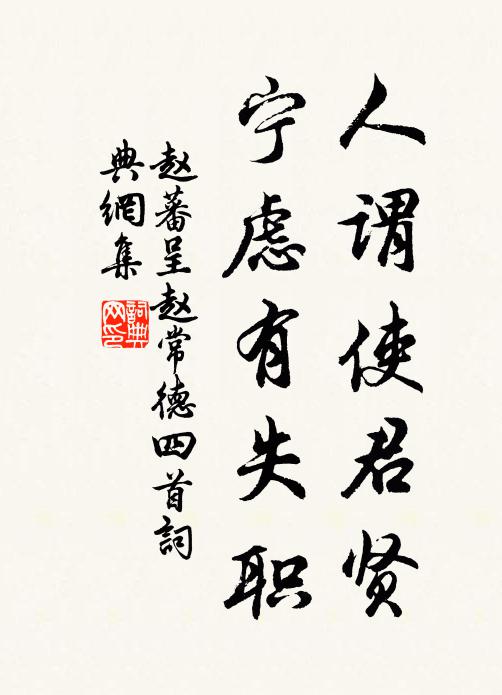 人谓使君贤
宁虑有失职
赵蕃呈赵常德四首詞
典網集
詞典網印